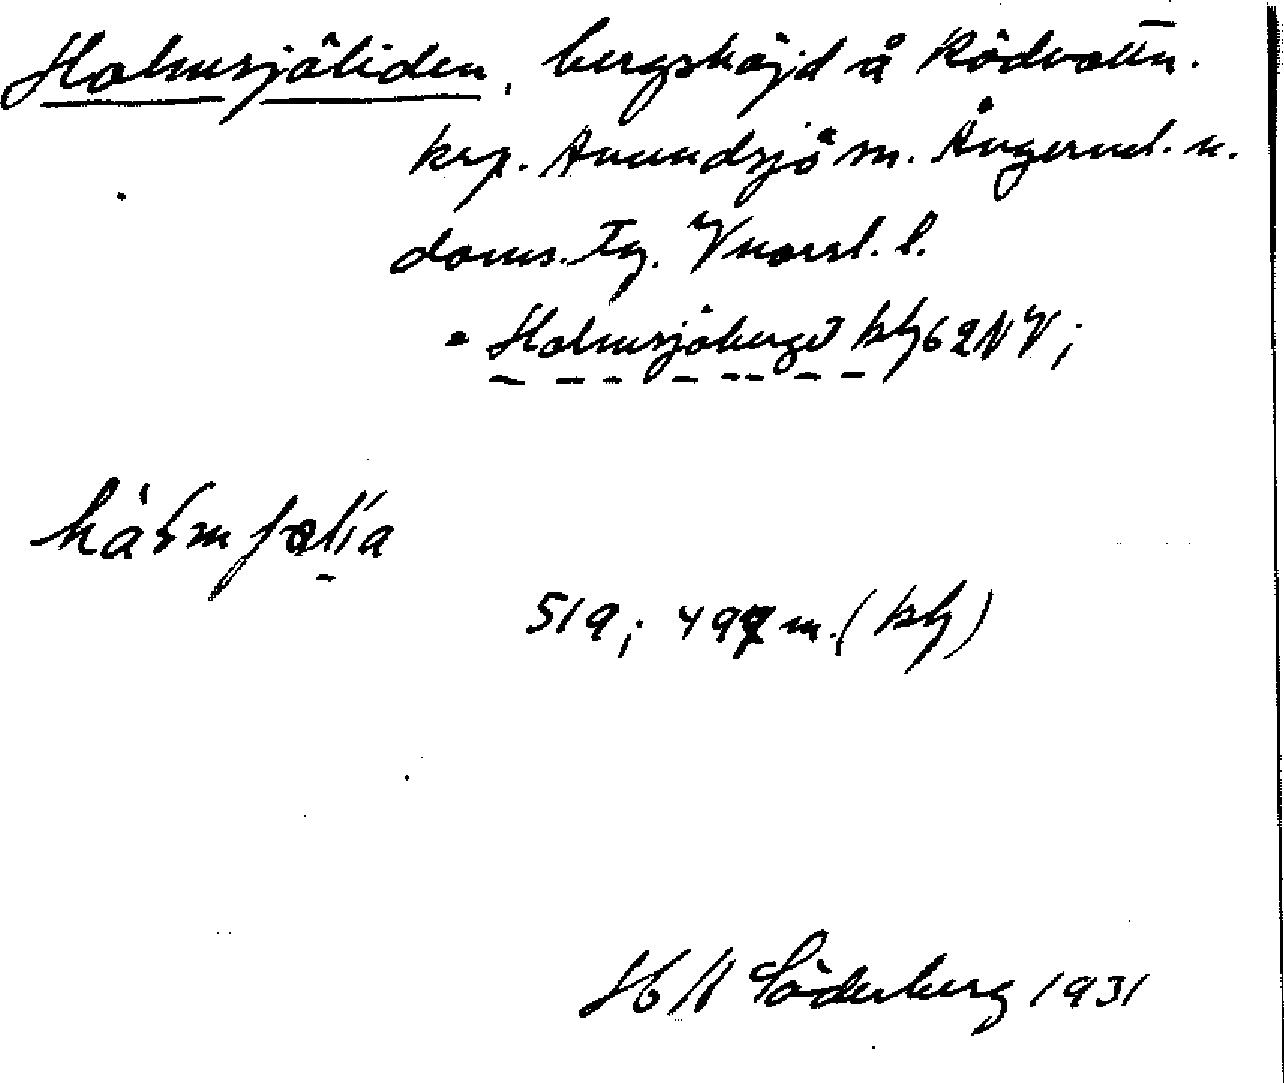 Holmsjöliden, bergshöjd å Rödvattn.
krp. Anundsjö sn. Ångerml. n.
doms. tg. Vnorrl. l.
= Holmsjöberget kbl 62NV;
519; 499 m. (kbl)
H M Söderberg 1931